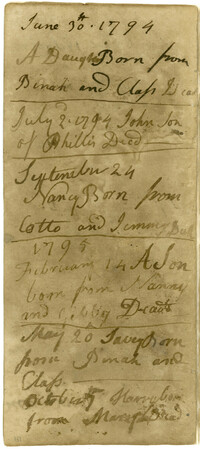 June 30th. 1794
A Daugh Born from
Dinah and Class Dea
July 2. 1794 John Son
of Phillis Dead
September 24
Nancy Born from
Cotto and Jemmy
1795
February 14 A Son
born from Nanny
and Cibby Dead
May 20 Born
from Dinah and
Class.
October Harry born
from Mercy Dead.